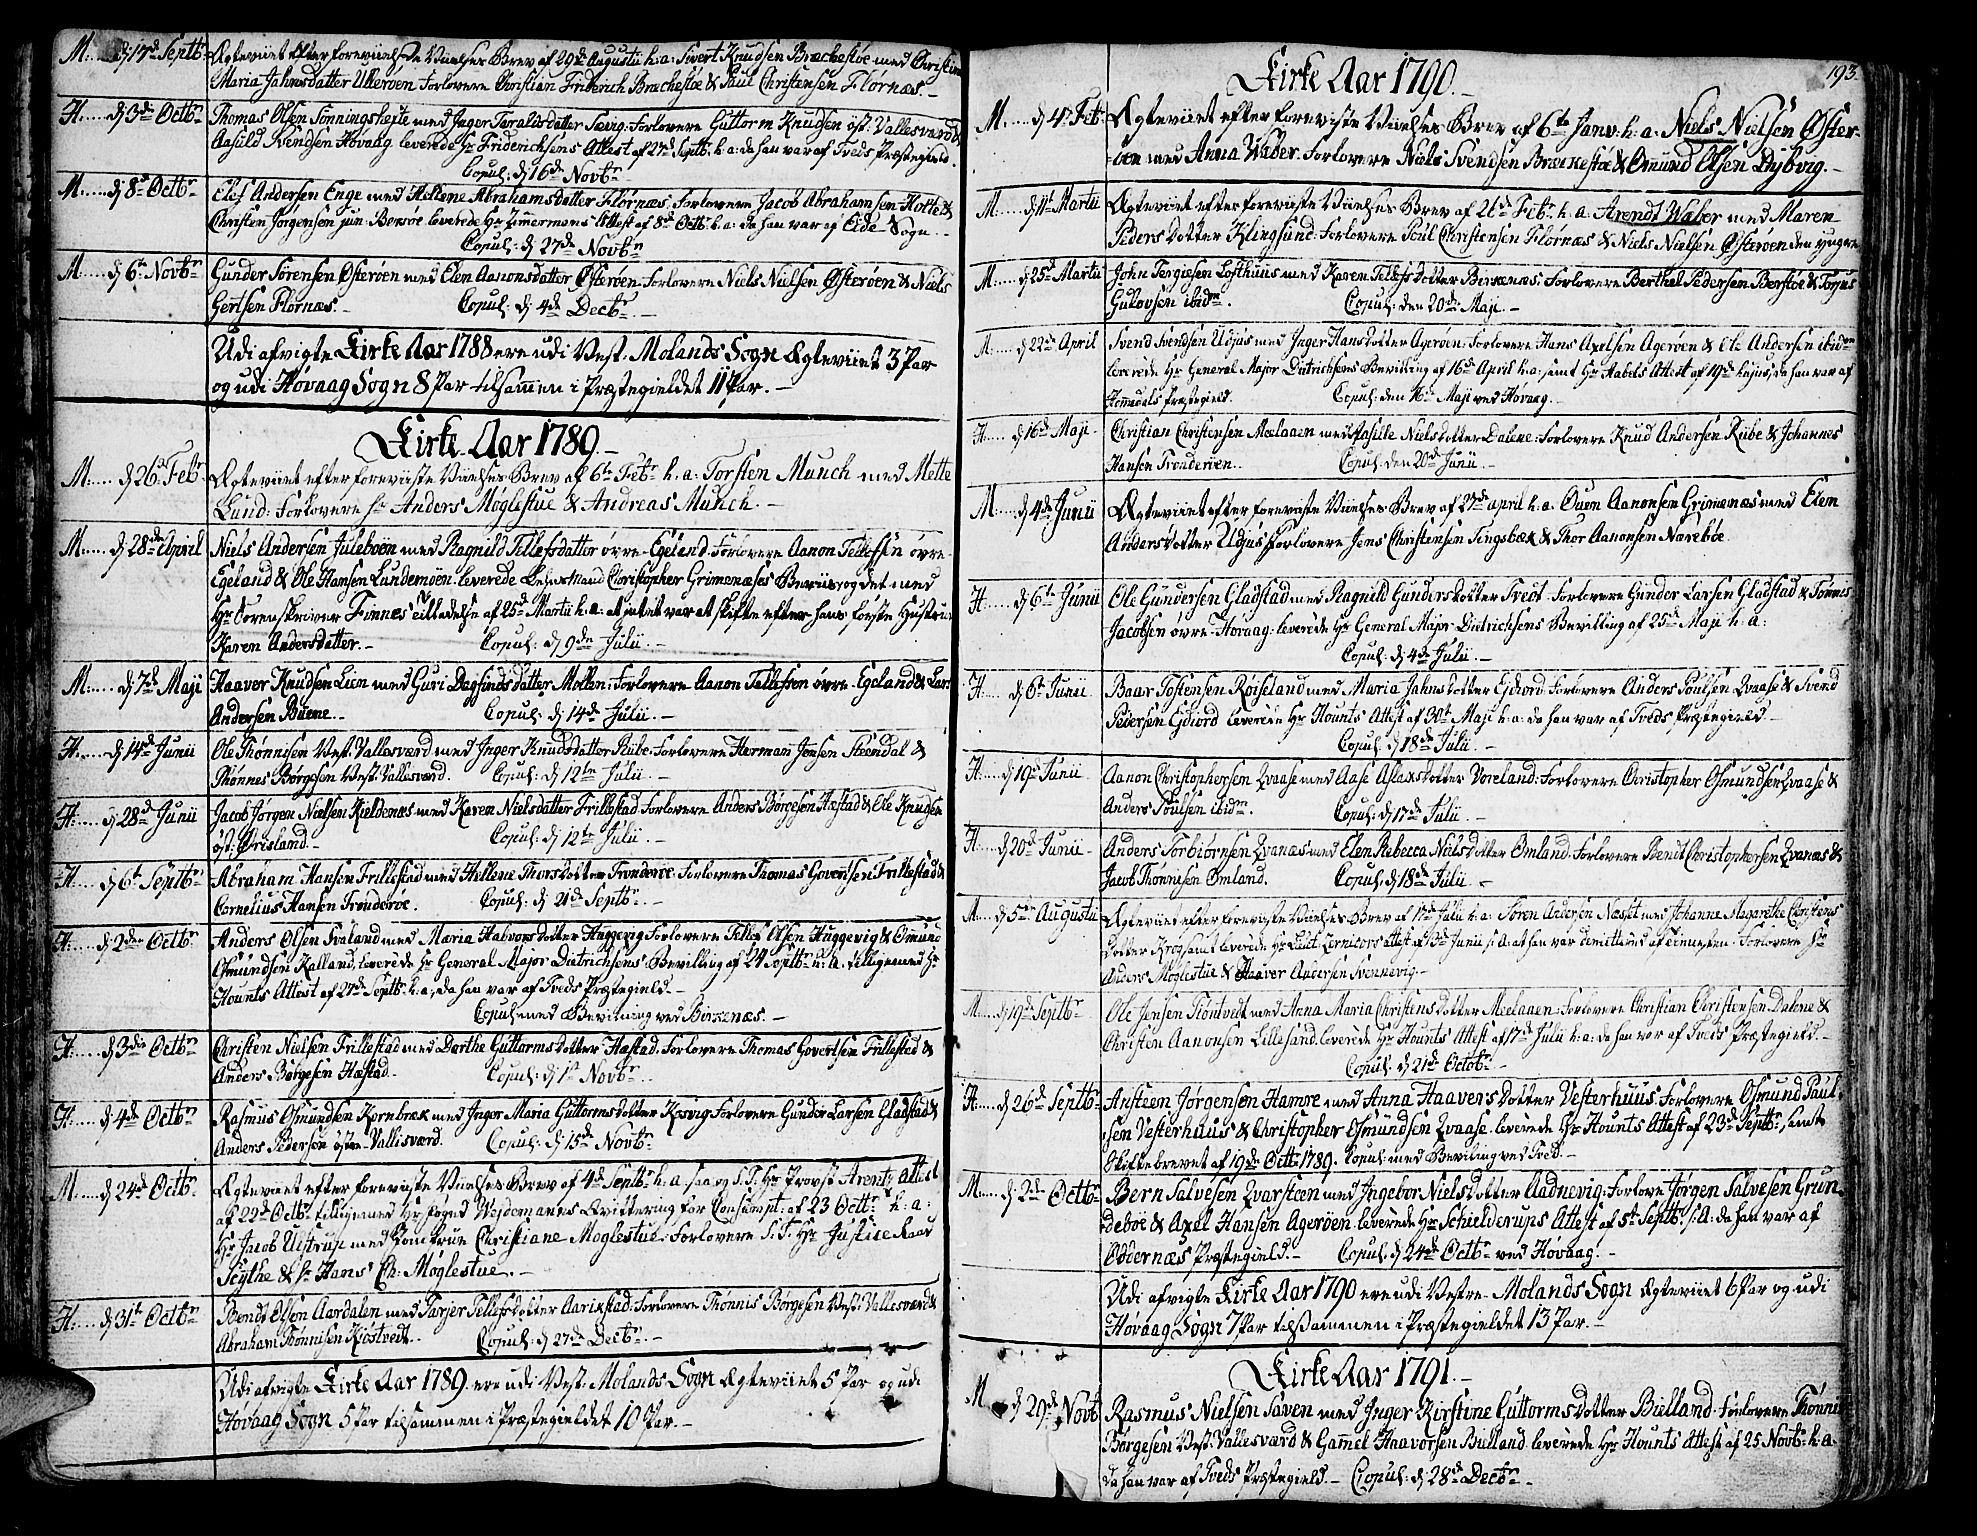 M. d 17d Septbr Ægteviiet efter foreviiste Viielses Brev af 29de Augustii h:a: Sivert Knudsen Brechestøe med Christine
Maria Jahnsdatter Ullerøen Forlovere Christian Friderich Brechestøe & Paul Christensen Flörnæs.
H. d 3de Octbr Thomas Olsen Sönningshefte med Inger Taraldsdatter Sævig: Forlovere Guttorm Knudsen öst: Vallesværd &
Aasild Svendsen Hövaag leverede Hr Friderichsens Attest af 27de Septbr h:a: da han var af Tveds Præstegield.
Copul: d 16de Novbr
M. d 8de Octbr Elef Andersen Enge med Hellene Abrahamsdatter Flörnæs: Forlovere Jacob Abrahamsen Holte &
Christen Jörgensen jun: leverede Hr Zimermans Attest af 8de Octbr h:a: da han var af Eide Sogn.
Copul: d 27de Novbr
M. d 6te Novbr Gunder Sörensen Østerøen med Elen Aanonsdatter Østerøen: Forlovere Niels Nielsen Østerøen & Niels
Gertsen Flörnæs. Copul: d 4de Decbr
Udi afvigte Kirke Aar 1788 ere udi Vest. Molands Sogn Ægteviiet 3 Par
og udi Høvaag Sogn 8 Par tilsamen i Præstegieldet 11 Par.
Kirke Aar 1789.
M. d 26d Febr Ægteviiet efter foreviiste Viielses Brev af 6te Febr h:a: Torsten Munch med Mette
Lund: Forlovere Sr Anders Möglestue & Andreas Munch.
M. d 28de April Niels Andersen Juleboen med Ragnild Tellefsdatter övre-Egeland: Forlovere Aanon Tellefsen övre-
Egeland & Ole Hansen Lundemoen. leverede Lehnsmand Christopher Grimenæses Beviis og det med
Hr Sorenskriver Finnes tilladelse af 25de Martii h:a: at intet var at skifte efter hans første Hustrue
Karen Andersdatter. Copul: d 9de Julii.
M. d 7de Maji Haaver Knudsen Liem med Guri Dagfindsdatter Molten: Forlovere Aanon Tellefsen övre-Egeland & Lars
Andersen Buene. Copul: d 14de Julii.
H. d 14de Junii Ole Thönnisen Vest: Vallesværd med Inger Knudsdatter Ribe: Forlovere Herman Jensen Steendal &
Thönnes Börgesen Vest: Vallesværd. Copul: d 12te Julii.
H. d 28de Junii Jacob Jörgen Nielsen Kieldenæs med Karen Nielsdatter Frillestad Forlovere Anders Börgesen Hæstad & Ole Knudsen
öst: Örisland. Copul: d 12te Julii
H. d 6te Septbr Abraham Hansen Frillestad med Hellene Thorsdotter Trondøröe: Forlovere Thomas Govertsen Frillestad &
Cornelius Hansen Trondøröe. Copul: d 21de Septbr
H. d 2den Octbr Anders Olsen Svaland med Maria Halvorsdotter Huggevig: Forlovere Tellef Olsen Huggevig & Omund
Osmundsen Kalland, leverede Hr General Major Dietrichsens Bevilling af 24 Septbr h:a: tilligemed Hr
Hounts Attest af 27de Septbr h:a: da han var af Tveds Præstegield.
Copul: med Beviling ved Birkenæs.
H. d 3die Octbr Christen Nielsen Frillestad med Dorthe Guttormsdotter Hæstad: Forlovere Thomas Govertsen Frillestad &
Anders Børgesen Hæstad. Copul: d 1st Novbr
H. d 4de Octbr Rasmus Osmundsen Kornbrek med Inger Maria Guttormsdotter Kosvig: Forlovere Gunder Larsen Gladstad &
Anders Pedersen östre-Vallisværd. Copul: d 15de Novbr
M. d 24de Octbr Ægteviiet efter foreviiste Viielses Brev af 4de Septbr h:a: saa og S.T. Hr Provst Arentz Attest
af 22de Octbr tilligemed Hr Foged Weidemanes Qvittering for Consumpt: af 23 Octbr h:a:
Hr Jacob Ulstrup med Jomfrue Christiane Moglestue: Forlovere S.T. Hr Justice Raad
Scythe & Sr Hans Ch: Möglestue.
H. d 31te Octbr Bendt Olsen Aardalen med Tarjer Tellefsdotter Aarikstad: Forlovere Thönnis Börgesen Vest: Vallesværd &
Abraham Thönnisen Kjöstvedt. Copul: d 27de Decbr
Udi afvigte Kirke Aar 1789 ere udi Vest: Molands Sogn Ægteviiet 5 Par og udi
Høvaag Sogn 5 Par tilsammen i Præstegieldet 10 Par.
193.
Kirke Aar 1790.
M. d 4de Febr Ægteviiet efter foreviste Viielses Brev af 6te Janv: h:a: Niels Nielsen Øster-
øen med Anna Waber. Forlovere Niels Svendsen Brækkestøe & Omund Olsen Dybvig.
M. d 11te Martii Ægteviiet efter foreviiste Viielses Brev af Febr h:a: Arendt Waber med Maren
Pedersdotter Klingsund: Forlovere Poul Christensen Flörnæs & Niels Nielsen Østerøen den yngre
M. d 25de Martii John Tergiesen Lofthuus med Karen Tellefsdotter Birkenæs: Forlovere Berthel Pedersen Berstøe & Torjus
Gulovsen ibidm. Copul: den 20de Maji.
M. d 22de April Svend Svendsen Udjus med Inger Hansdotter Agerøen: Forlovere Hans Axelsen Agerøen & Ole Andersen ibidm
leverede Hr General Major Dietrichsens Bevilling af 16de April h:a: samt Hr Habels Attest af 19de hujus, da han var af
Homedals Præstegield. Copul: den 16de Maji ved Høvaag.
H. d 16de Maji Christian Christensen Meelaaen med Aasille Nielsdotter Dalene: Forlovere Knud Andersen Ribe & Johannes
Hansen Tronderöen. Copul: den 20de Junii.
M. d 4de Junii Ægteviiet efter foreviste Viielses Brev af 27de april h:a: Ouen Aanonsen Grimenæs med Elen
Andersdotter Udjus Forlovere Jens Christensen Singsbæk & Thor Aanonsen Narebøe.
H. d 6te Junii Ole Gundersen Gladstad med Ragnild Gundersdotter Tvedt: Forlovere Gunder Larsen Gladstad & Tønnis
Jacobsen övre-Høvaag: leverede Hr General Major Dietrichsens Bevilling af 25de Maji h:a:
Copul: d 4de Julii.
H. d 6te Junii Baar Tostensen Röiseland med Maria Jahnsdotter Eftiord: Forlovere Anders Poulsen Qvaase & Svend
Pedersen leverede Hr Hounts Attest af 30te Maji h:a: da han var af Tveds Præstegield.
Copul: d 18de Julii.
H. d 19de Junii Aanon Christophersen Qvaase med Aase Aslaksdotter Voreland: Forlovere Christopher Osmundsen Qvaase &
Anders Poulsen ibidm. Copul: d 17de Julii
H. d 20de Junii Anders Torbiörnsen Qvanæs med Elen Rebecca Nielsdotter Omland. Forlovere Bendt Christophersen Qvanæs &
Jacob Thönnisen Omland. Copul: d 18de Julii.
M. d 5te Augustii Ægteviiet efter foreviste Viielses Brev af 17de Julii h:a: Sören Andersen Næset med Johanne Magarethe Christens
dotter Krog samt leverede Hr Attest af 13de Junii s:A: at han var dimitterd af tienesten. Forlovere Sr
Anders Moglestue & Haaver Andersen Svennevig.
M. d 19de Septbr Ole Jensen Tiöntvedt med Anna Maria Christensdotter Meelaaen: Forlovere Christian Christensen Dalene &
Christen Aanonsen Lillesand. leverede Hr Hounts Attest af 17de Julii h:a: da han var af Tveds Præstegield.
Copul: d 21de Octobr
H. d 26de Septbr Ansteen Jörgensen Hamre med Anna Haaversdotter Vesterhuus: Forlovere Osmund Paul-
sen Vesterhuus & Christopher Osmundsen Qvaase. leverede Hr Hounts Attest af 23de Septbr, samt
Skiftebrevet af 19de Octbr 1789. Copul: med Beviling ved Tved.
M. d 2de Octbr Bern Salvesen Qvarsteen med Ingebor Nielsdotter Aadnevig: Forlove Jørgen Salvesen Grun-
debøe & Axel Hansen Agerøen: leverede Hr Schielderups Attest af 5te Septbr s:A: da han var af
Oddernæs Præstegield. Copul: d 24de Octbr ved Høvaag.
Udi afvigte Kirke Aar 1790 ere udi Vestre-Molands Sogn Ægteviiet 6 Par og udi
Høvaag Sogn 7 Par tilsammen i Præstegieldet 13 Par.
Kirke Aar 1791.
M d 29de Novbr Rasmus Nielsen Saven med Inger Kirstine Guttormsdotter Bielland: Forlovere Thönnis
Börgesen Vest: Vallesværd & Gammel Haavorsen Bielland. leverede Hr Hounts Attest af 25 Novbr h:a:
da han var af Tveds Præstegield. Copul: d 28de Decbr.